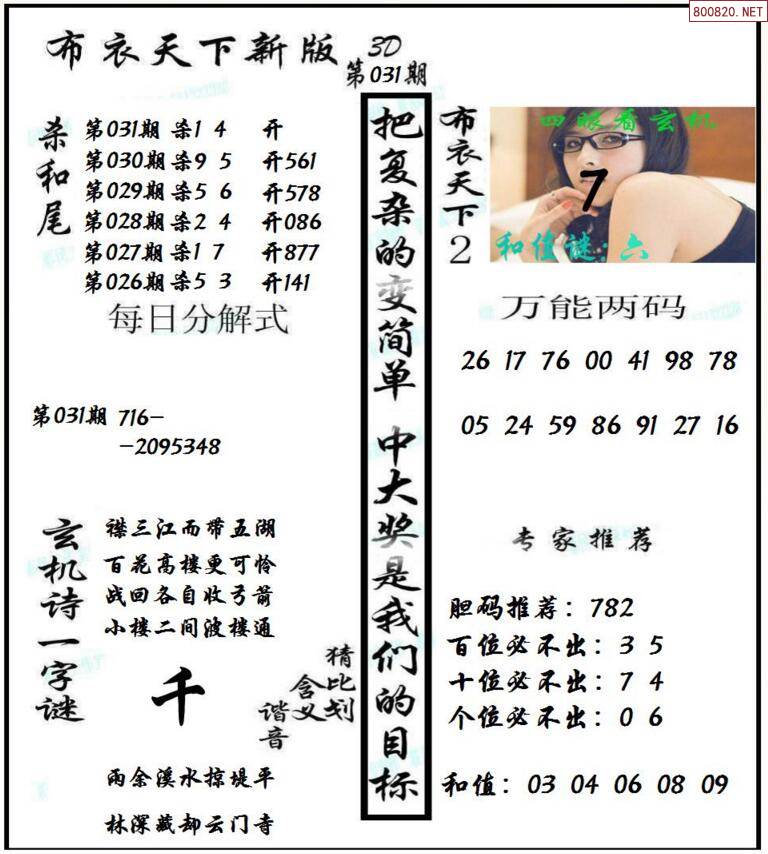 800820.NET
布衣天下新版
3D
第031期
杀和尾
第031期 杀1 4 开
第030期 杀9 5 开561
第029期 杀5 6 开578
第028期 杀2 4 开086
第027期 杀1 7 开877
第026期 杀5 3 开141
每日分解式
第031期 716-
-2095348
玄机诗一字谜
襟三江而带五湖
百花高楼更可怜
战回各自收弓箭
小楼二间波楼通
千
猜比划
含义
谐音
雨余溪水掠堤平
林深藏却云门寺
把复杂的变简单 中大奖是我们的目标
布衣天下2
四眼看玄机
7
和值谜:六
万能两码
26 17 76 00 41 98 78
05 24 59 86 91 27 16
专家推荐
胆码推荐：782
百位必不出：3 5
十位必不出：7 4
个位必不出：0 6
和值：03 04 06 08 09